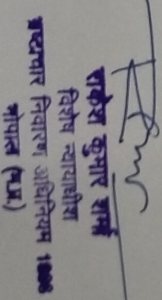 राकेश कुमार शर्मा
विशेष न्यायाधीश
भ्रष्टाचार निवारण अधिनियम 1988
भोपाल (म.प्र.)